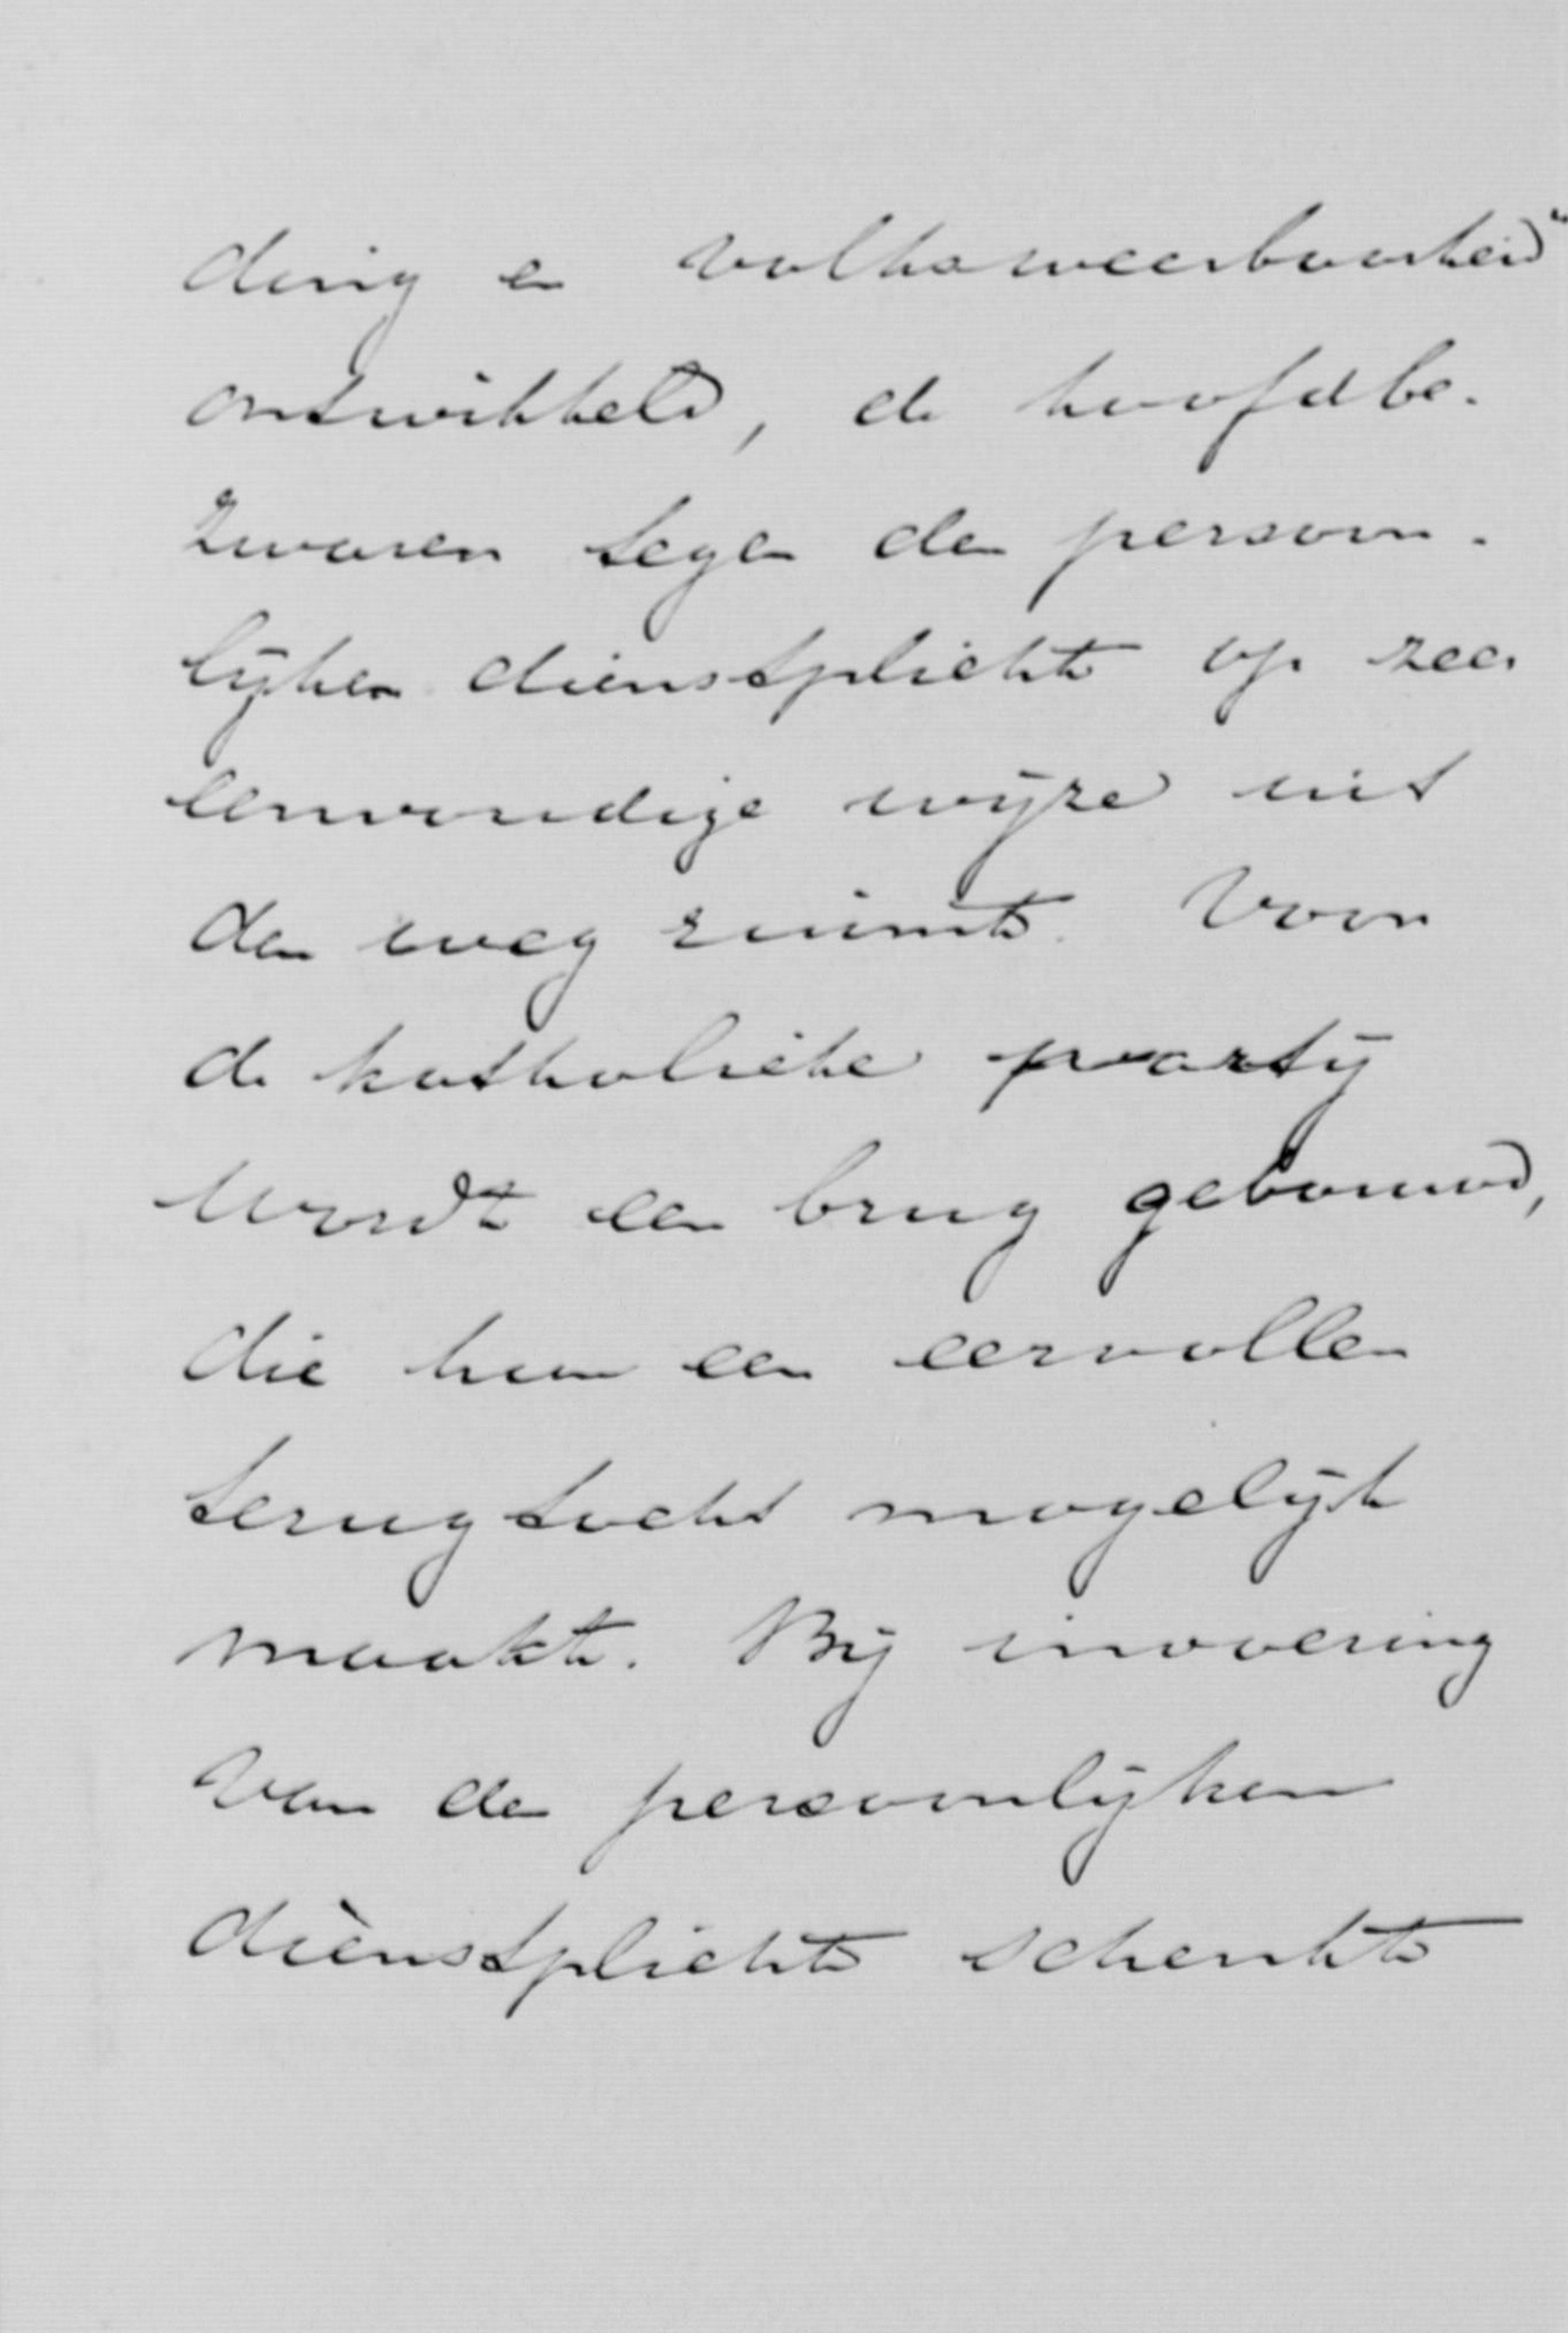 ding en volksweerbaarheid"
ontwikkeld, de hoofdbe-
zwaren tegen den persoon-
lijken dienstplicht op zeer
eenvoudige wijze uit
den weg ruimt. Voor
de katholieke partij
wordt een brug gebouwd,
die hun een eervollen
terugtocht mogelijk
maakt. Bij invoering
van den persoonlijken
dienstplicht schenkt